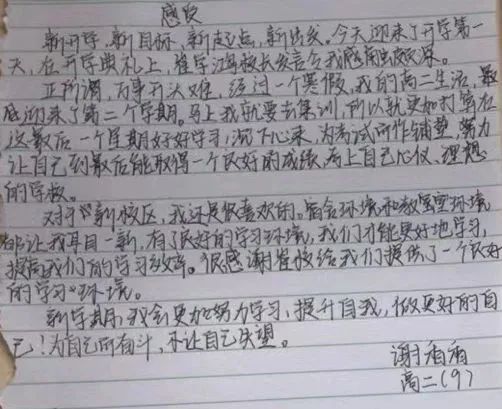 感受
新开学,新目标,新起点,新出发。今天迎来了开学第一
天,在开学典礼上,崔学江校长发言令我感触颇深。
正所谓,万事开头难,经过一个寒假,我的高二生活,最
后迎来了第二个学期。马上我就要去集训,所以就更加打算在
这最后一个星期好好学习,沉下心来,为考试所作铺垫,努力
让自己到最后能取得一个良好的成绩,考上自己心仪、理想
的学校。
对于新校区,我还是很喜欢的。宿舍环境和教室环境
都让我耳目一新,有了良好的学习环境,我们才能更好地学习,
提高我们的学习效率。很感谢崔校给我们提供了一个良好
的学习环境。
新学期,我会更加努力学习,提升自我,做更好的自
己!为自己所奋斗,不让自己失望。
谢香香
高二(9)